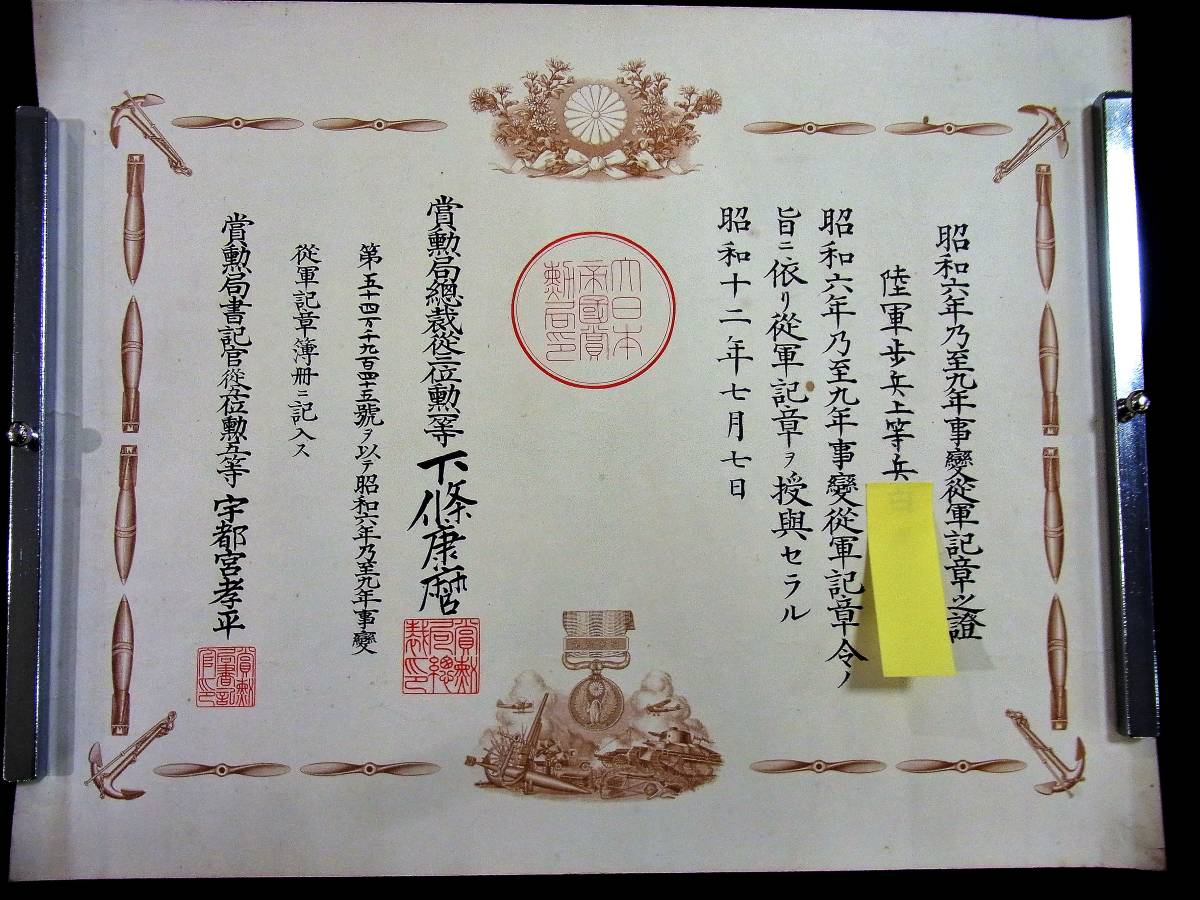 昭和六年乃至九年事變從軍記章之證
陸軍步兵上等兵
昭和六年乃至九年事變從軍記章令ノ
旨ニ依リ從軍記章ヲ授與セラル
昭和十二年七月七日
大日本
帝國賞
勳局印
賞勲局總裁從三位勲一等 下條康麿
賞勳
局總
裁印
第五十四万千九百四十五號ヲ以テ昭和六年乃至九年事變
從軍記章簿冊ニ記入ス
賞勲局書記官從五位勲五等 宇都宮孝平
賞勳
局書記
官印